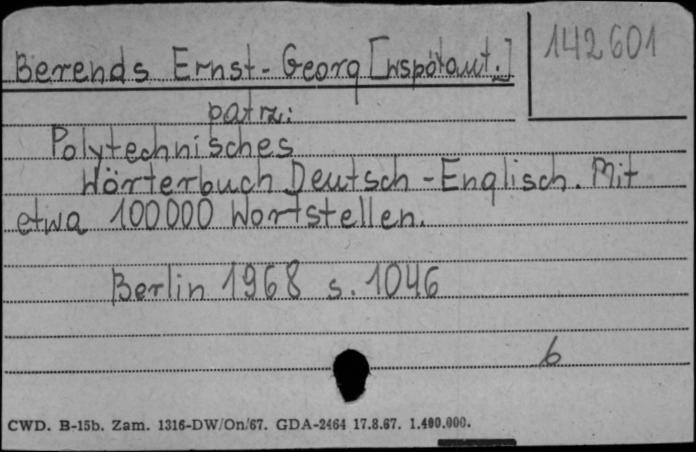 142601
Berends Ernst-Georg [współaut.]
patrz:
Polytechnisches
Wörterbuch Deutsch-Englisch. Mit
etwa 100000 Wortstellen.
Berlin 1968 s. 1046
b
CWD. B-15b. Zam. 1316-DW/On/67. GDA-2464 17.8.67. 1.400.000.